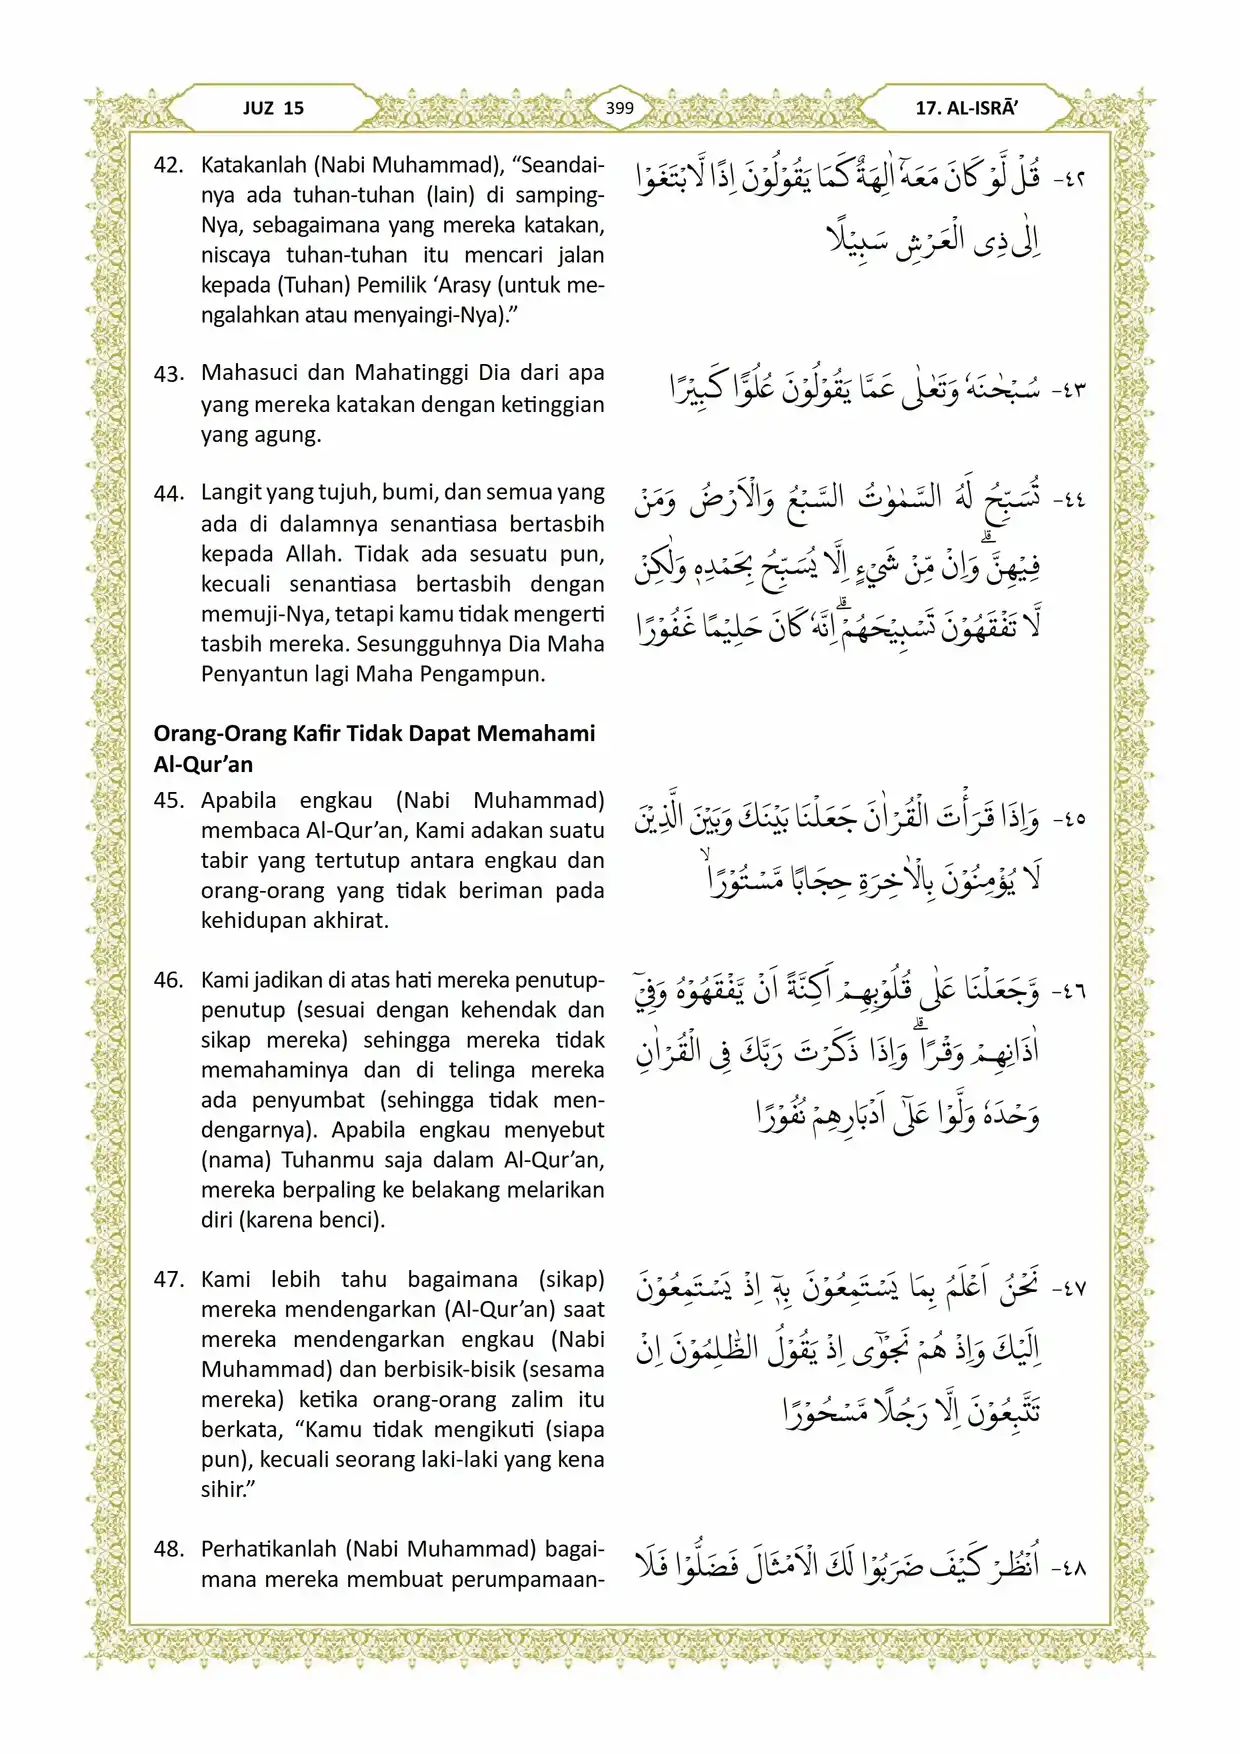 JUZ 15
399
17. AL-ISRĀ’
42. Katakanlah (Nabi Muhammad), “Seandai-
nya ada tuhan-tuhan (lain) di samping-
Nya, sebagaimana yang mereka katakan,
niscaya tuhan-tuhan itu mencari jalan
kepada (Tuhan) Pemilik ‘Arasy (untuk me-
ngalahkan atau menyaingi-Nya).”
٤٢- قُلْ لَّوْ كَانَ مَعَهٗٓ اٰلِهَةٌ كَمَا يَقُوْلُوْنَ اِذًا لَّابْتَغَوْا
اِلٰى ذِى الْعَرْشِ سَبِيْلًا
43. Mahasuci dan Mahatinggi Dia dari apa
yang mereka katakan dengan ketinggian
yang agung.
٤٣- سُبْحٰنَهٗ وَتَعٰلٰى عَمَّا يَقُوْلُوْنَ عُلُوًّا كَبِيْرًا
44. Langit yang tujuh, bumi, dan semua yang
ada di dalamnya senantiasa bertasbih
kepada Allah. Tidak ada sesuatu pun,
kecuali senantiasa bertasbih dengan
memuji-Nya, tetapi kamu tidak mengerti
tasbih mereka. Sesungguhnya Dia Maha
Penyantun lagi Maha Pengampun.
٤٤- تُسَبِّحُ لَهُ السَّمٰوٰتُ السَّبْعُ وَالْاَرْضُ وَمَنْ
فِيْهِنَّۗ وَاِنْ مِّنْ شَيْءٍ اِلَّا يُسَبِّحُ بِحَمْدِهٖ وَلٰكِنْ
لَّا تَفْقَهُوْنَ تَسْبِيْحَهُمْۗ اِنَّهٗ كَانَ حَلِيْمًا غَفُوْرًا
Orang-Orang Kafir Tidak Dapat Memahami
Al-Qur’an
45. Apabila engkau (Nabi Muhammad)
membaca Al-Qur’an, Kami adakan suatu
tabir yang tertutup antara engkau dan
orang-orang yang tidak beriman pada
kehidupan akhirat.
٤٥- وَاِذَا قَرَأْتَ الْقُرْاٰنَ جَعَلْنَا بَيْنَكَ وَبَيْنَ الَّذِيْنَ
لَا يُؤْمِنُوْنَ بِالْاٰخِرَةِ حِجَابًا مَّسْتُوْرًاۙ
46. Kami jadikan di atas hati mereka penutup-
penutup (sesuai dengan kehendak dan
sikap mereka) sehingga mereka tidak
memahaminya dan di telinga mereka
ada penyumbat (sehingga tidak men-
dengarnya). Apabila engkau menyebut
(nama) Tuhanmu saja dalam Al-Qur’an,
mereka berpaling ke belakang melarikan
diri (karena benci).
٤٦- وَّجَعَلْنَا عَلٰى قُلُوْبِهِمْ اَكِنَّةً اَنْ يَّفْقَهُوْهُ وَفِيْٓ
اٰذَانِهِمْ وَقْرًاۗ وَاِذَا ذَكَرْتَ رَبَّكَ فِى الْقُرْاٰنِ
وَحْدَهٗ وَلَّوْا عَلٰٓى اَدْبَارِهِمْ نُفُوْرًا
47. Kami lebih tahu bagaimana (sikap)
mereka mendengarkan (Al-Qur’an) saat
mereka mendengarkan engkau (Nabi
Muhammad) dan berbisik-bisik (sesama
mereka) ketika orang-orang zalim itu
berkata, “Kamu tidak mengikuti (siapa
pun), kecuali seorang laki-laki yang kena
sihir.”
٤٧- نَحْنُ اَعْلَمُ بِمَا يَسْتَمِعُوْنَ بِهٖٓ اِذْ يَسْتَمِعُوْنَ
اِلَيْكَ وَاِذْ هُمْ نَجْوٰٓى اِذْ يَقُوْلُ الظّٰلِمُوْنَ اِنْ
تَتَّبِعُوْنَ اِلَّا رَجُلًا مَّسْحُوْرًا
48. Perhatikanlah (Nabi Muhammad) bagai-
mana mereka membuat perumpamaan-
٤٨- اُنْظُرْ كَيْفَ ضَرَبُوْا لَكَ الْاَمْثَالَ فَضَلُّوْا فَلَا